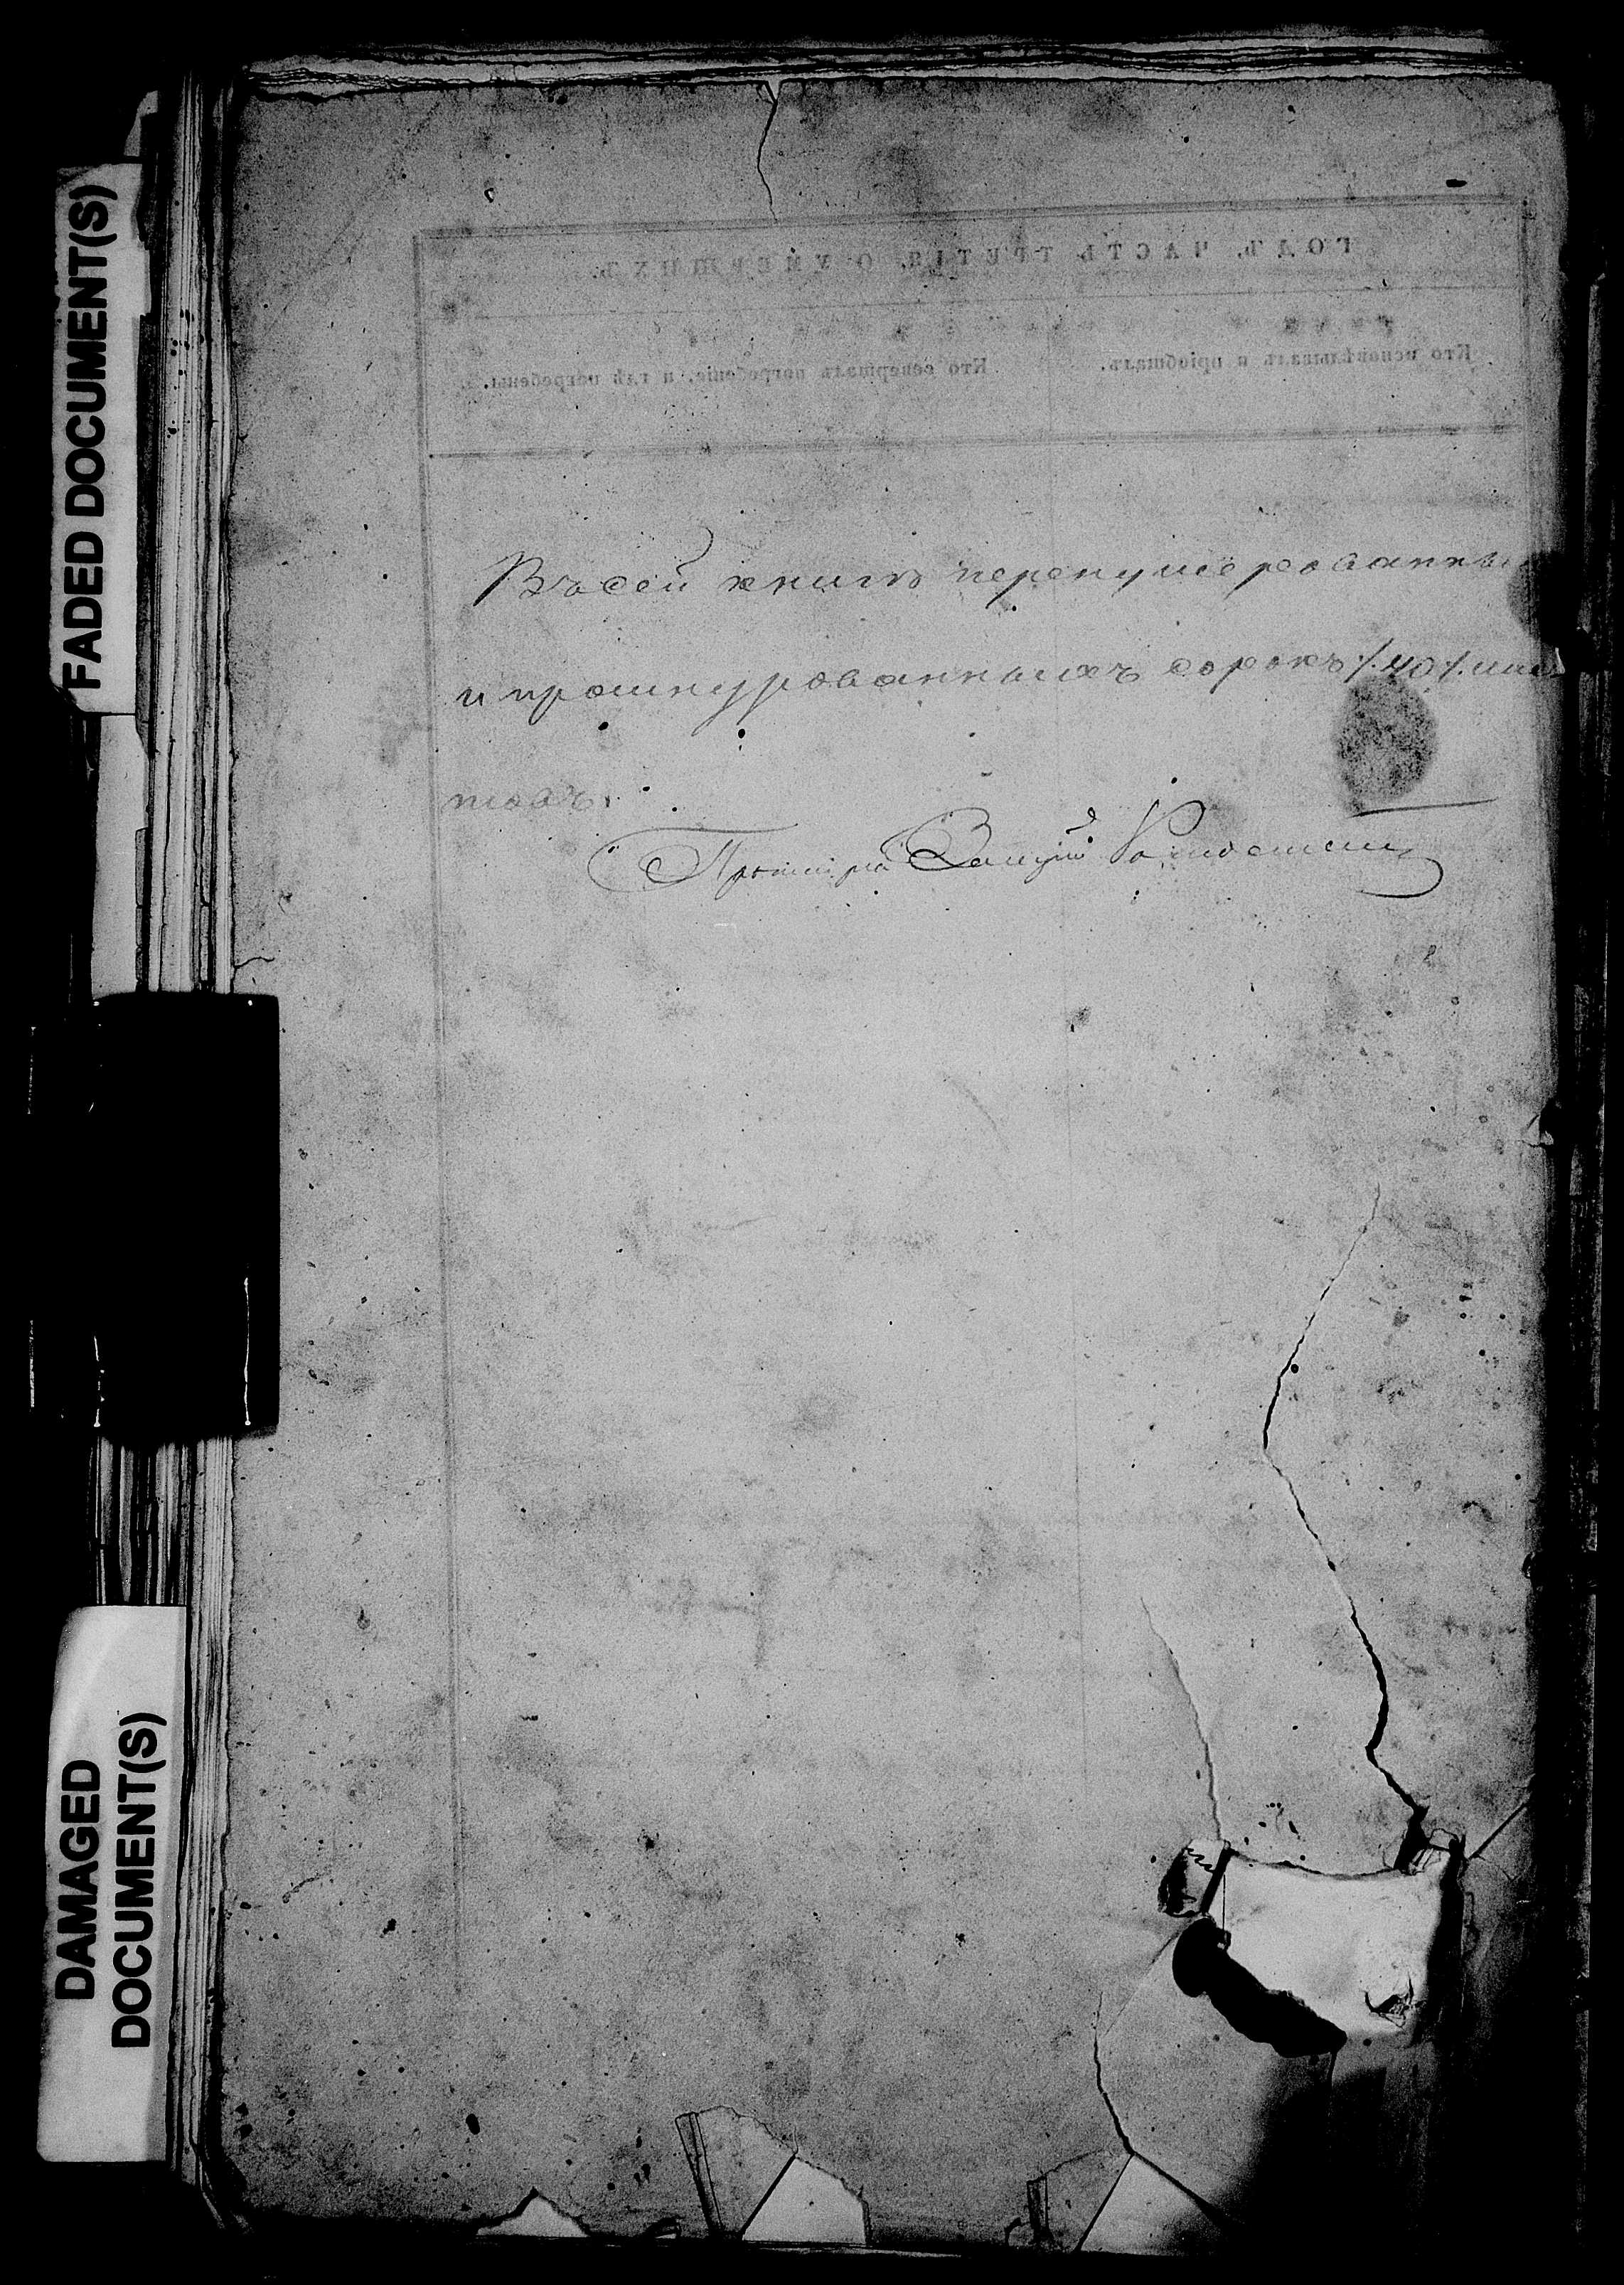 FADED DOCUMENT(S)
ГОДЪ, ЧАСТЬ ТРЕТІЯ, О УМЕРШИХЪ.
Кто исповѣдывалъ и пріобщалъ.
Кто совершалъ погребеніе, и гдѣ погребены.
Въ сей книгѣ перенумерованны
и прошнурованныхъ сорокъ /.40/. лис
товъ.
DAMAGED
DOCUMENT(S)